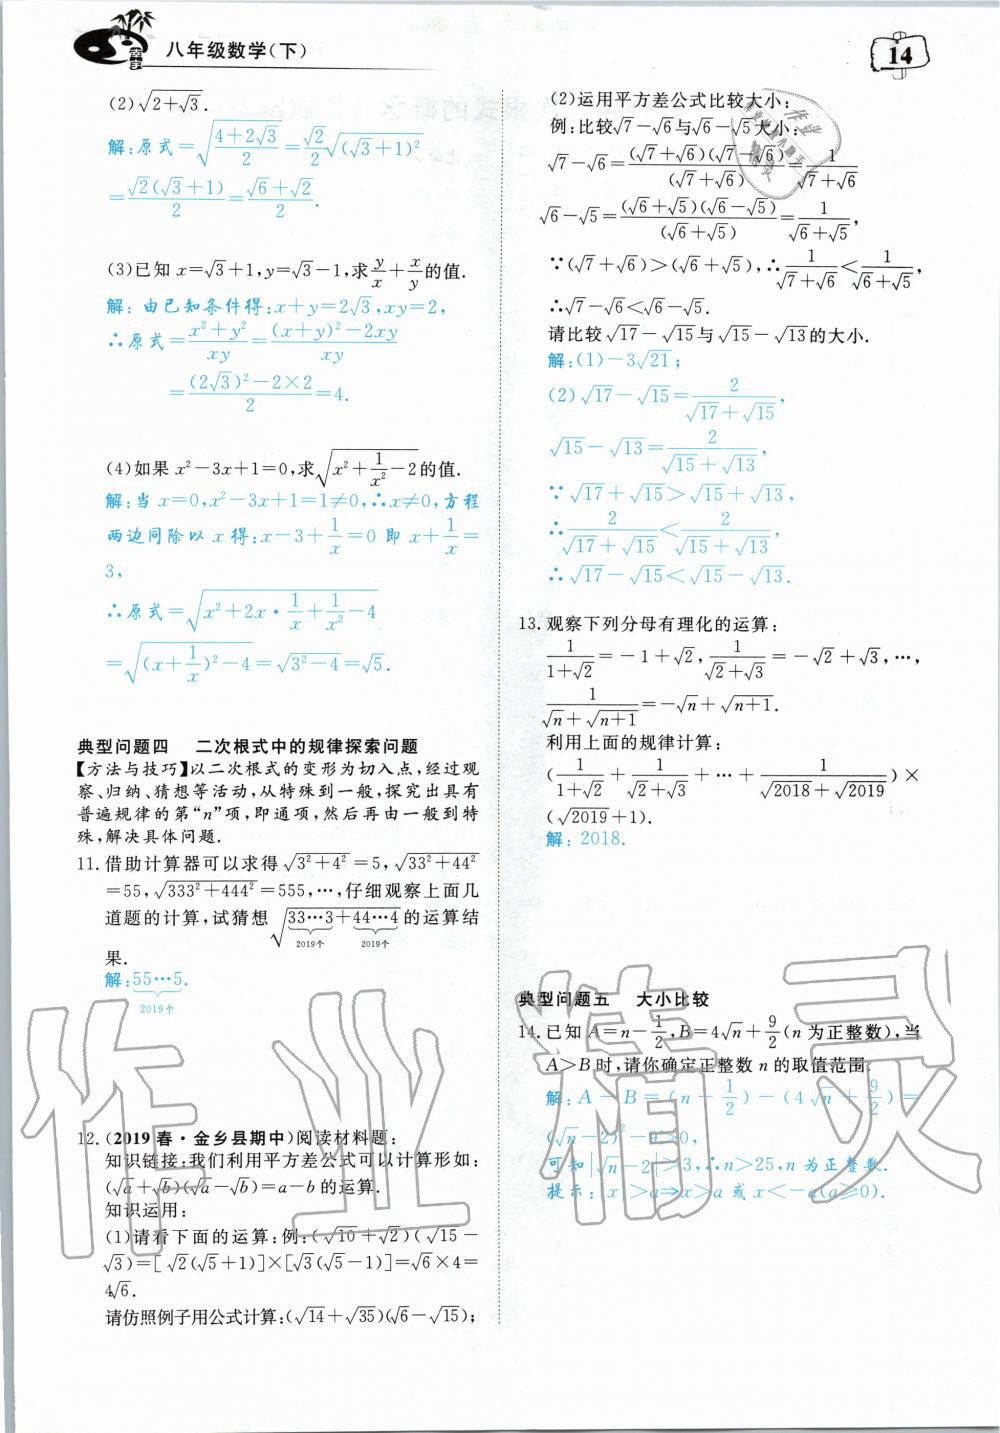 八年级数学(下)
14
(2)√(2+√3).
解:原式=√((4+2√3)/2)=(√2/2)√((√3+1)²)
=√2(√3+1)/2=(√6+√2)/2.
(3)已知 x=√3+1,y=√3-1,求y/x+x/y的值.
解:由已知条件得:x+y=2√3,xy=2,
∴原式=(x²+y²)/xy=((x+y)²-2xy)/xy
=((2√3)²-2×2)/2=4.
(4)如果 x²-3x+1=0,求√(x²+1/x²-2)的值.
解:当 x=0,x²-3x+1=1≠0,∴x≠0,方程
两边同除以 x 得:x-3+1/x=0 即 x+1/x=
3,
∴原式=√(x²+2x·1/x+1/x²-4)
=√((x+1/x)²-4)=√(3²-4)=√5.
典型问题四 二次根式中的规律探索问题
【方法与技巧】以二次根式的变形为切入点,经过观
察、归纳、猜想等活动,从特殊到一般,探究出具有
普遍规律的第“n”项,即通项,然后再由一般到特
殊,解决具体问题.
11.借助计算器可以求得√(3²+4²)=5,√(33²+44²)
=55,√(333²+444²)=555,…,仔细观察上面几
道题的计算,试猜想√(33…3+44…4)的运算结
2019个 2019个
果.
解:55…5.
2019个
12.(2019春·金乡县期中)阅读材料题:
知识链接:我们利用平方差公式可以计算形如:
(√a+√b)(√a-√b)=a-b的运算.
知识运用:
(1)请看下面的运算:例:(√10+√2)(√15-
√3)=[√2(√5+1)]×[√3(√5-1)]=√6×4=
4√6.
请仿照例子用公式计算:(√14+√35)(√6-√15);
(2)运用平方差公式比较大小:
例:比较√7-√6与√6-√5大小:
√7-√6=(√7+√6)(√7-√6)/(√7+√6)=1/(√7+√6)
√6-√5=(√6+√5)(√6-√5)/(√6+√5)=1/(√6+√5),
∵(√7+√6)>(√6+√5),∴1/(√7+√6)<1/(√6+√5),
∴√7-√6<√6-√5.
请比较√17-√15与√15-√13的大小.
解:(1)-3√21;
(2)√17-√15=2/(√17+√15),
√15-√13=2/(√15+√13),
∵√17+√15>√15+√13,
∴2/(√17+√15)<2/(√15+√13),
∴√17-√15<√15-√13.
13.观察下列分母有理化的运算:
1/(1+√2)=-1+√2,1/(√2+√3)=-√2+√3,…,
1/(√n+√(n+1))=-√n+√(n+1).
利用上面的规律计算:
(1/(1+√2)+1/(√2+√3)+…+1/(√2018+√2019))×
(√2019+1).
解:2018.
典型问题五 大小比较
14.已知 A=n-1/2,B=4√n+9/2(n 为正整数),当
A>B时,请你确定正整数 n 的取值范围.
解:A-B=(n-1/2)-(4√n+9/2)=
(√n-2)²-9>0,
可知|√n-2|>3,∴n>25,n 为正整数.
提示:x²>a²⇒x>a 或 x<-a(a≥0).
作业精灵